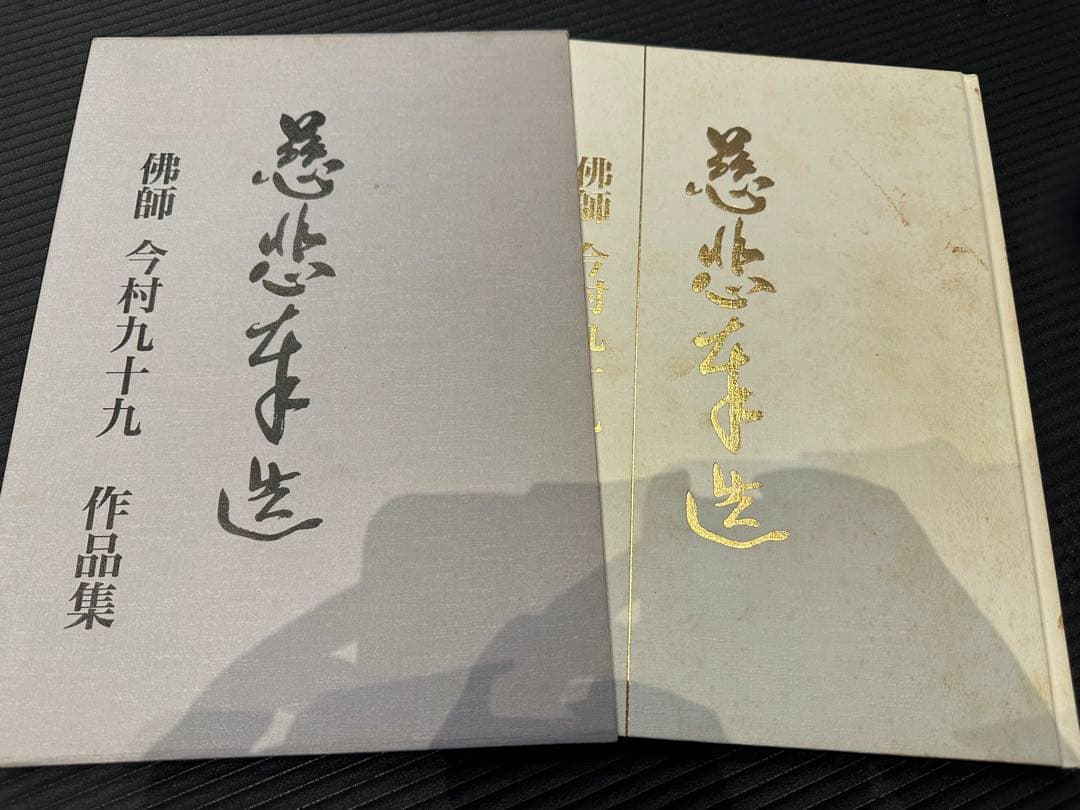 慈悲奉造
佛師 今村九十九 作品集
慈悲奉造
佛師 今村九十九